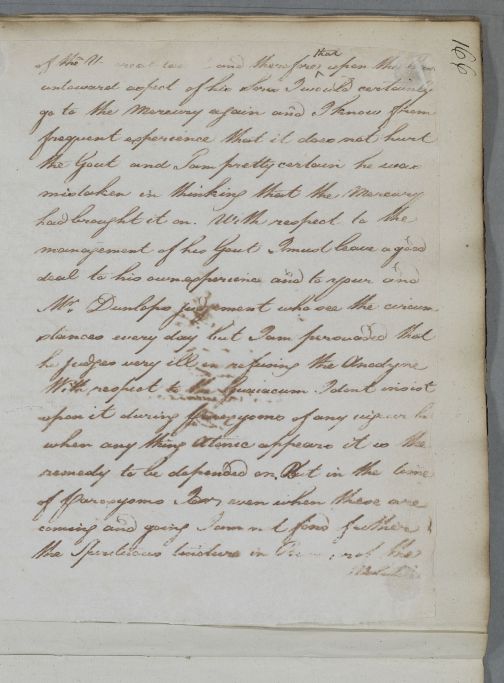 166
of the and therefore that upon the
untoward aspect of his Sores I would certainly
go to the Mercury again and I know from
frequent experience that it does not hurt
the Gout and I am pretty certain he was
mistaken in thinking that the Mercury
had brought it on. With respect to the
management of his Gout I must leave a good
deal to his own experience and to your and
Mr. Dunlops judgement who see the circum
stances every day but I am persuaded that
he judges very ill in refusing the Anodyne
With respect to the Guaiacum I dont insist
upon it during Paroxysms of any vigour
when any thing Atonic appears it is the
remedy to be depended on. But in the time
of Paroxysms even when these are
coming and going I am not fond of
the Spiritous tincture in not the